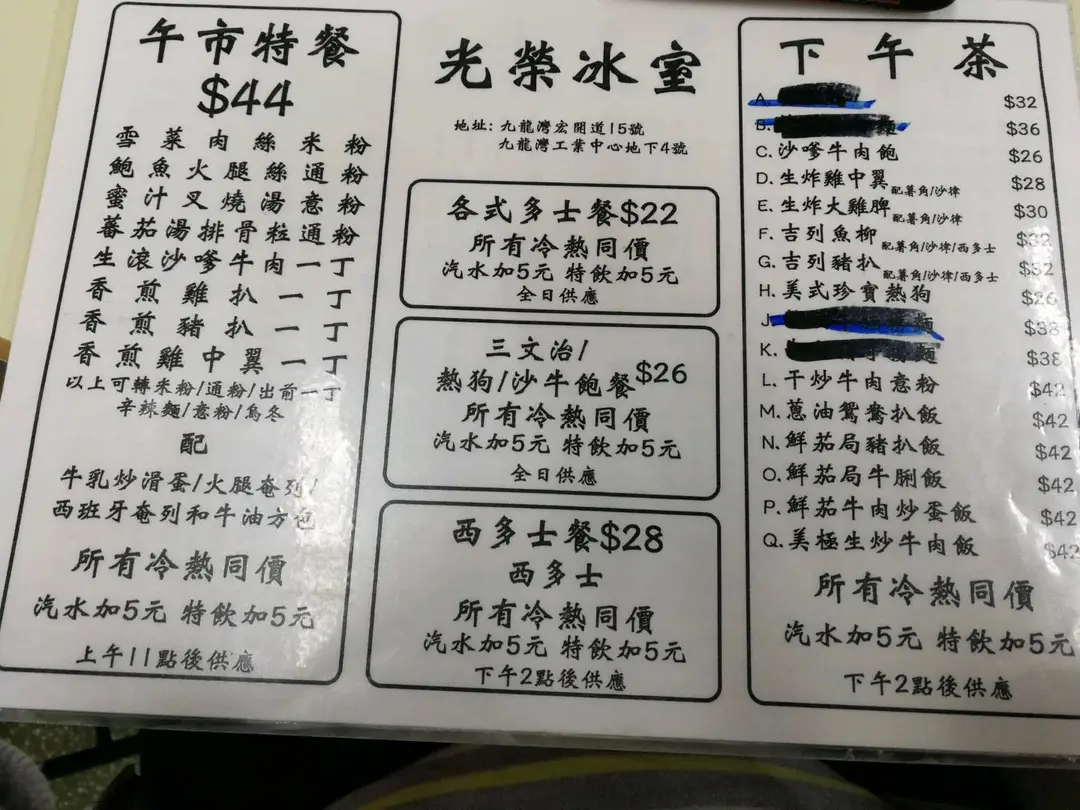 午市特餐
$44
雪菜肉絲米粉
鮑魚火腿絲通粉
蜜汁叉燒湯意粉
蕃茄湯排骨粒通粉
生滾沙嗲牛肉一丁
香煎雞扒一丁
香煎豬扒一丁
香煎雞中翼一丁
以上可轉米粉/通粉/出前一丁
辛辣麵/意粉/烏冬
配
牛乳炒滑蛋/火腿奄列/
西班牙奄列和牛油方包
所有冷熱同價
汽水加5元 特飲加5元
上午11點後供應
光榮冰室
地址: 九龍灣宏開道15號
九龍灣工業中心地下4號
各式多士餐$22
所有冷熱同價
汽水加5元 特飲加5元
全日供應
三文治/
熱狗/沙牛飽餐$26
所有冷熱同價
汽水加5元 特飲加5元
全日供應
西多士餐$28
西多士
所有冷熱同價
汽水加5元 特飲加5元
下午2點後供應
下午茶
A. $32
B. 麵 $36
C. 沙嗲牛肉飽 $26
D. 生炸雞中翼 配薯角/沙律 $28
E. 生炸大雞脾 配薯角/沙律 $30
F. 吉列魚柳 配薯角/沙律/西多士 $32
G. 吉列豬扒 配薯角/沙律/西多士 $32
H. 美式珍寶熱狗 $26
J. 麵 $38
K. 麵 $38
L. 干炒牛肉意粉 $42
M. 蔥油鴛鴦扒飯 $42
N. 鮮茄局豬扒飯 $42
O. 鮮茄局牛脷飯 $42
P. 鮮茄牛肉炒蛋飯 $42
Q. 美極生炒牛肉飯 $42
所有冷熱同價
汽水加5元 特飲加5元
下午2點後供應